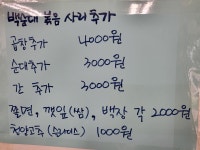 백순대 볶음 사리 추가
곱창추가 4000원
순대추가 3000원
간 추가 3000원
쫄면, 깻잎(쌈), 백장 각 2000원
청양고추(소스) 1000원